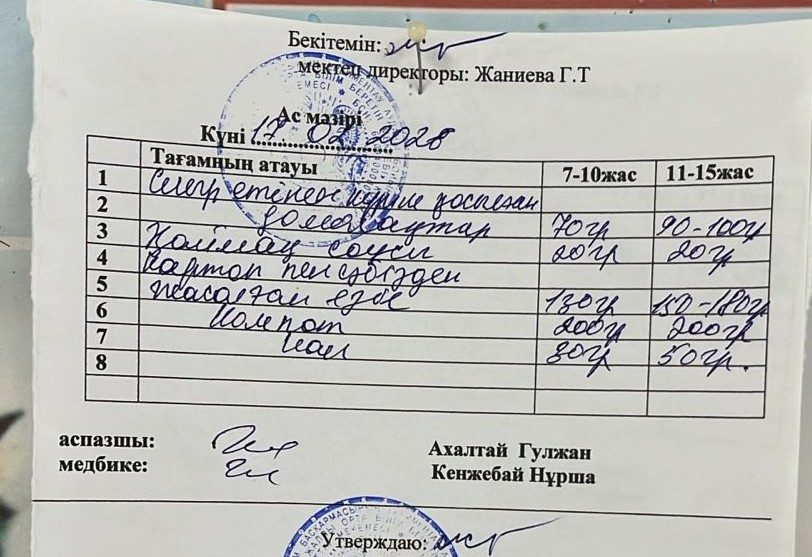 Бекітемін:
мектеп директоры: Жаниева Г.Т
Ас мәзірі
Күні 17. 02. 2026
Тағамның атауы 7-10жас 11-15жас
1 Сиыр етінен күріш қосылған
2 домалақтар 70гр 90-100гр
3 Қаймақ соусы 20гр 20гр
4 Картоп пен сәбізден
5 жасалған езбе 130гр 150-180гр
6 Компот 200гр 200гр
7 Нан 30гр 50гр.
8
аспазшы: Ахалтай Гулжан
медбике: Кенжебай Нұрша
Утверждаю: